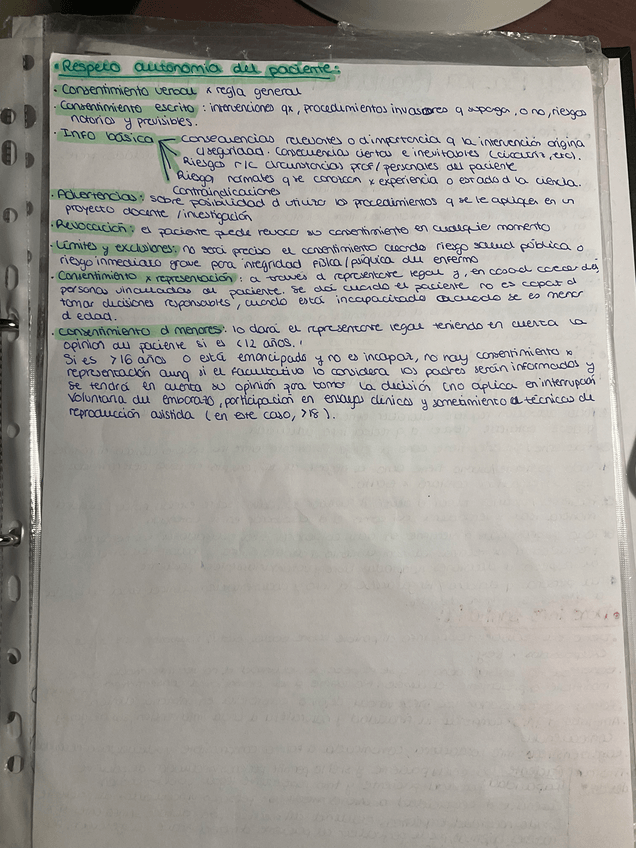 • Respeto autonomía del paciente:
· Consentimiento verbal x regla general
· Consentimiento escrito: intervenciones qx, procedimientos invasores q suponga, o no, riesgos
notorios y previsibles.
· Info básica
Consecuencias relevantes o d importancia q la intervención origina
c/seguridad. Consecuencias ciertas e inevitables (cicatriz, etc).
Riesgos r/c circunstancias prof/personales del paciente
Riesgo normales que conozcan x experiencia o estado d la ciencia.
Contraindicaciones
· Advertencias: sobre posibilidad d utilizar los procedimientos q se le apliquen en un
proyecto docente/investigación
· Revocación: el paciente puede revocar su consentimiento en cualquier momento
· Límites y exclusiones: no será preciso el consentimiento cuando riesgo salud pública o
riesgo inmediato grave para integridad física/psíquica del enfermo
· Consentimiento x representación: a través d representante legal y, en caso d carecer d él,
personas vinculadas al paciente. Se da cuando el paciente no es capaz d
tomar decisiones responsables, cuando está incapacitado o cuando se es menor
d edad.
· Consentimiento d menores: lo dará el representante legal teniendo en cuenta la
opinión del paciente si es <12 años.
Si es >16 años o está emancipado y no es incapaz, no hay consentimiento x
representación aunq si el facultativo lo considera los padres serán informados y
se tendrá en cuenta su opinión para tomar la decisión (no aplica en interrupción
voluntaria del embarazo, participación en ensayos clínicos y sometimiento a técnicas de
reproducción asistida (en este caso, >18).